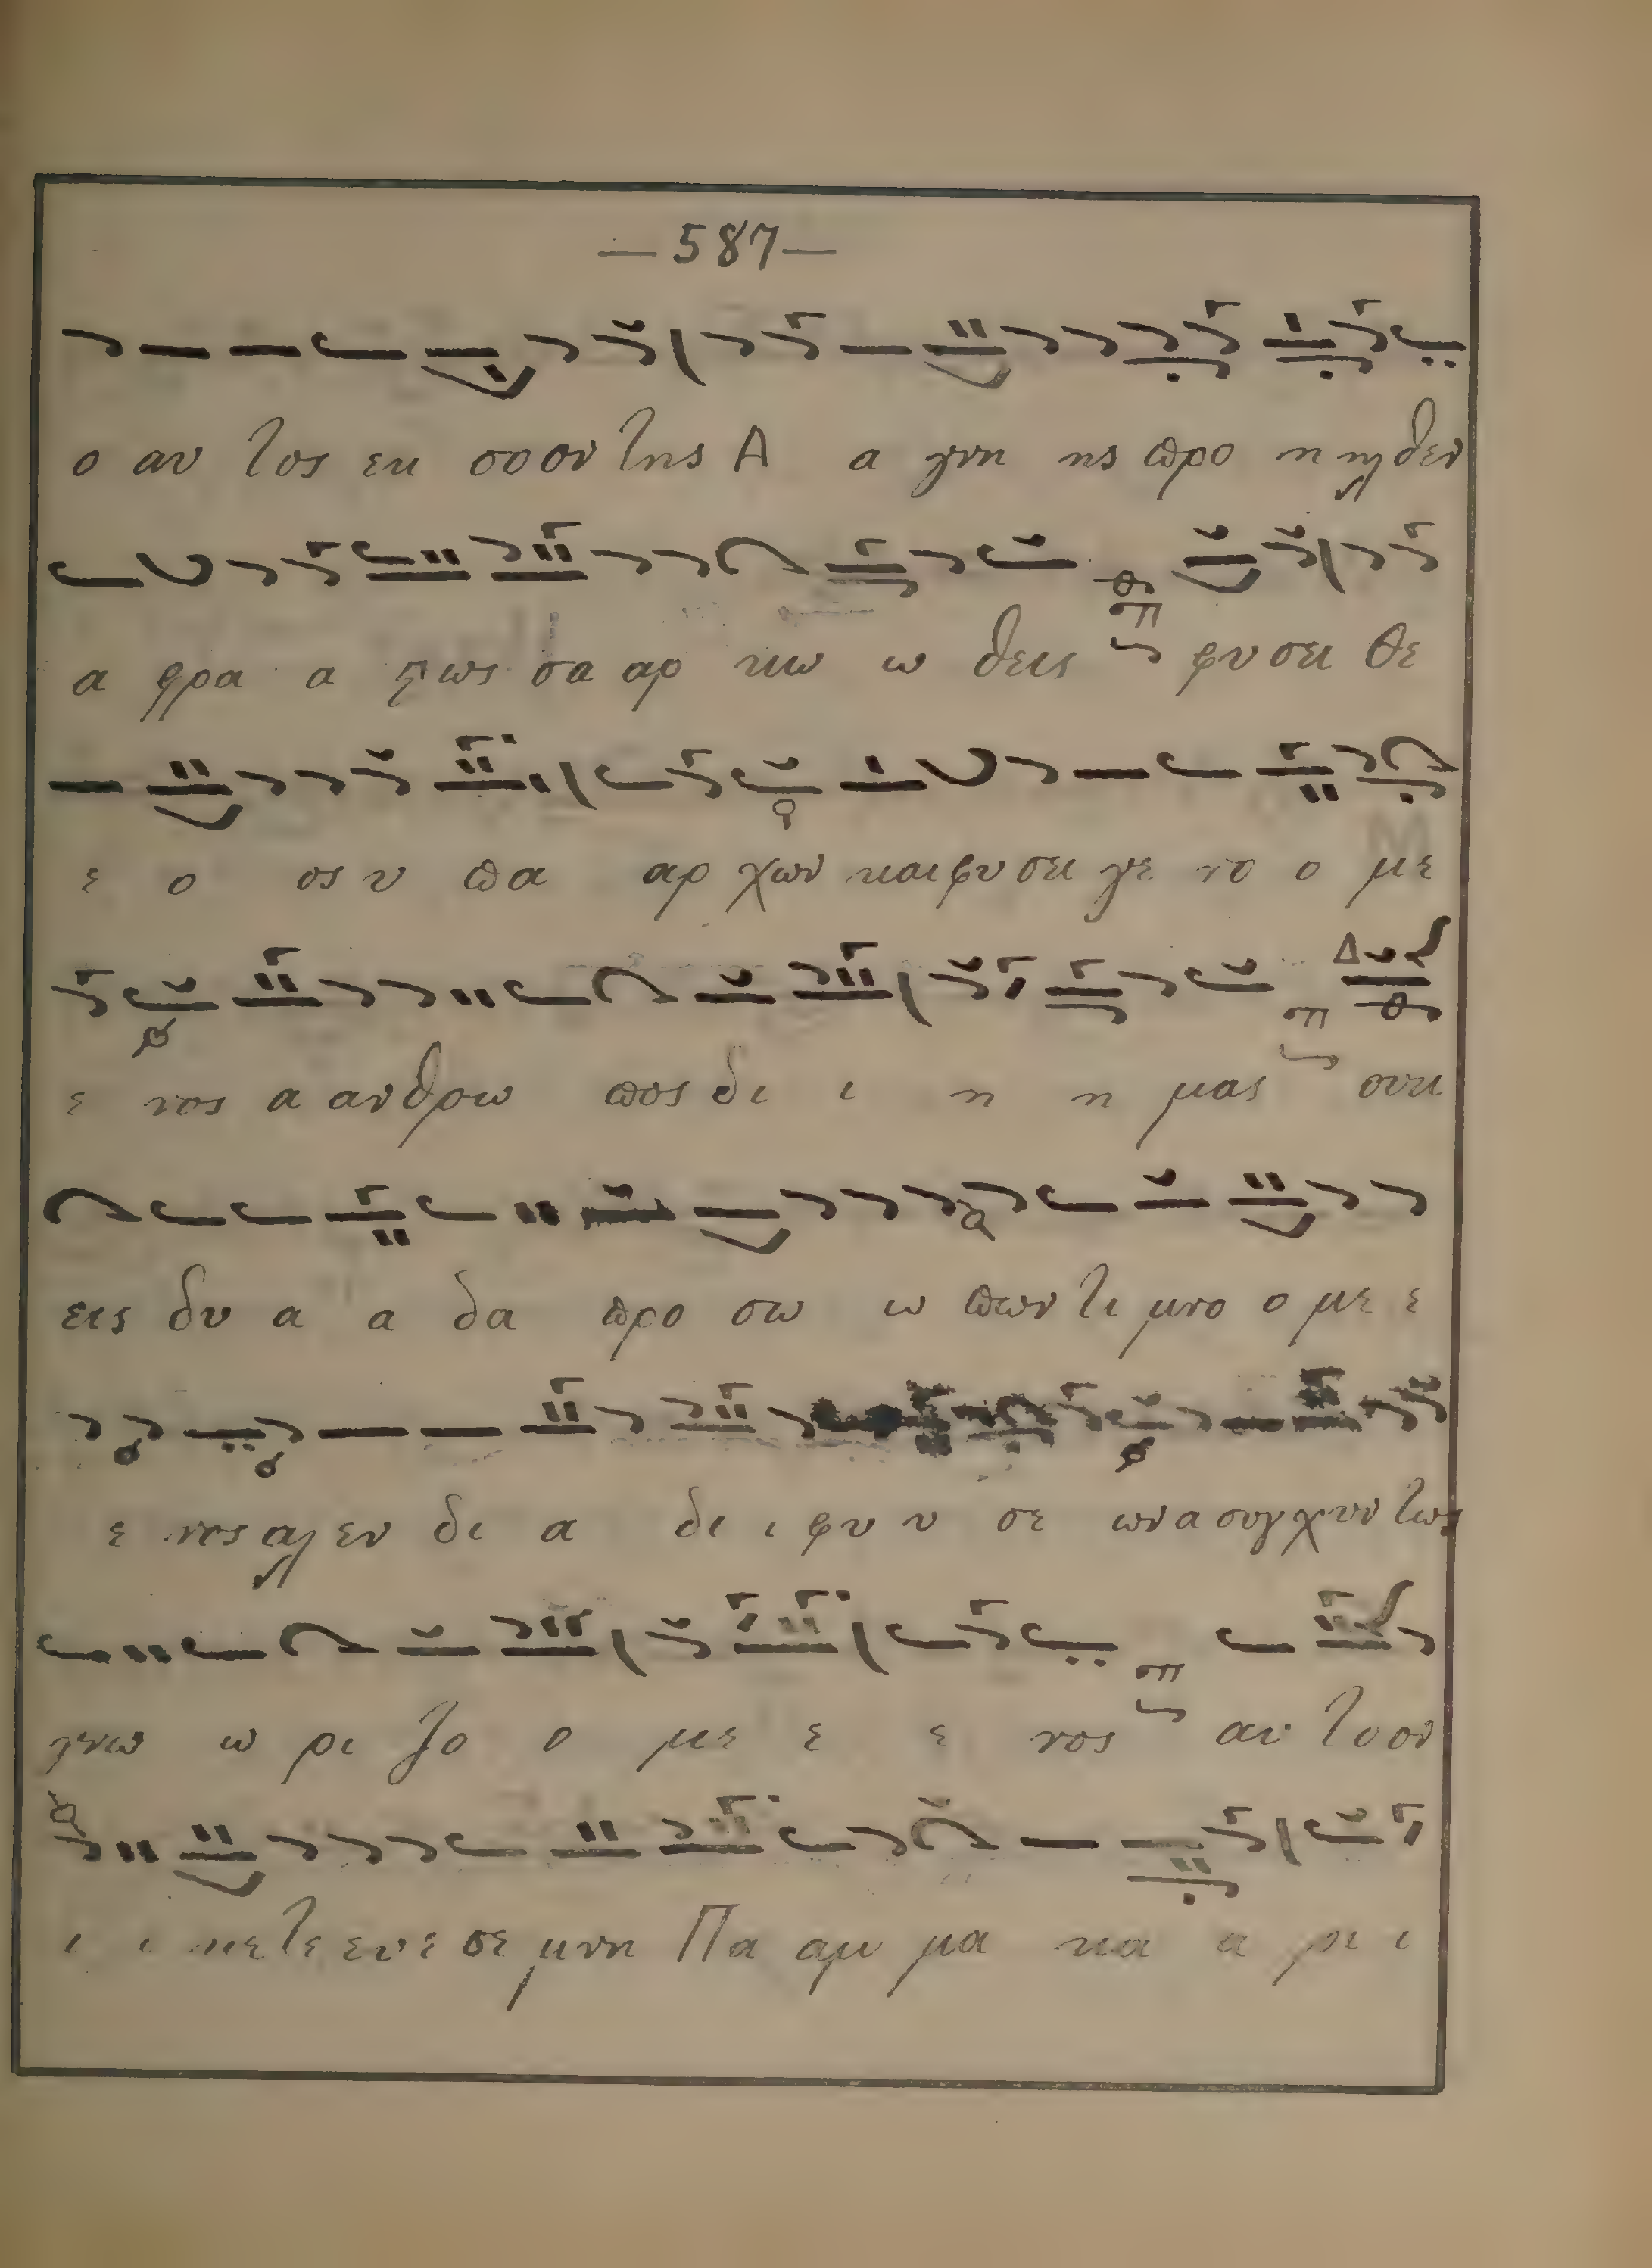 — 587 —
ο αυ τος εκ σοου της Α α γνη ης προ η ηλθεν
α φρα α στως σα αρ κω ω θεις φυ σει Θε
ε ο ος υ πα αρ χων και φυ σει γε νο ο με
ε νος α αν θρω πος δι ι η η μας ουκ
εις δυ α α δα προ σω ω πων τε μνο ο με ε
ε νος αλ εν δι α δι ι φυ υ σε ων α συγ χυυ τως
γνω ω ρι ζο ο με ε ε νος αυ το ον
ι ι κε τε ευ ε σε μνη Πα αμ μα κα α ρι ι